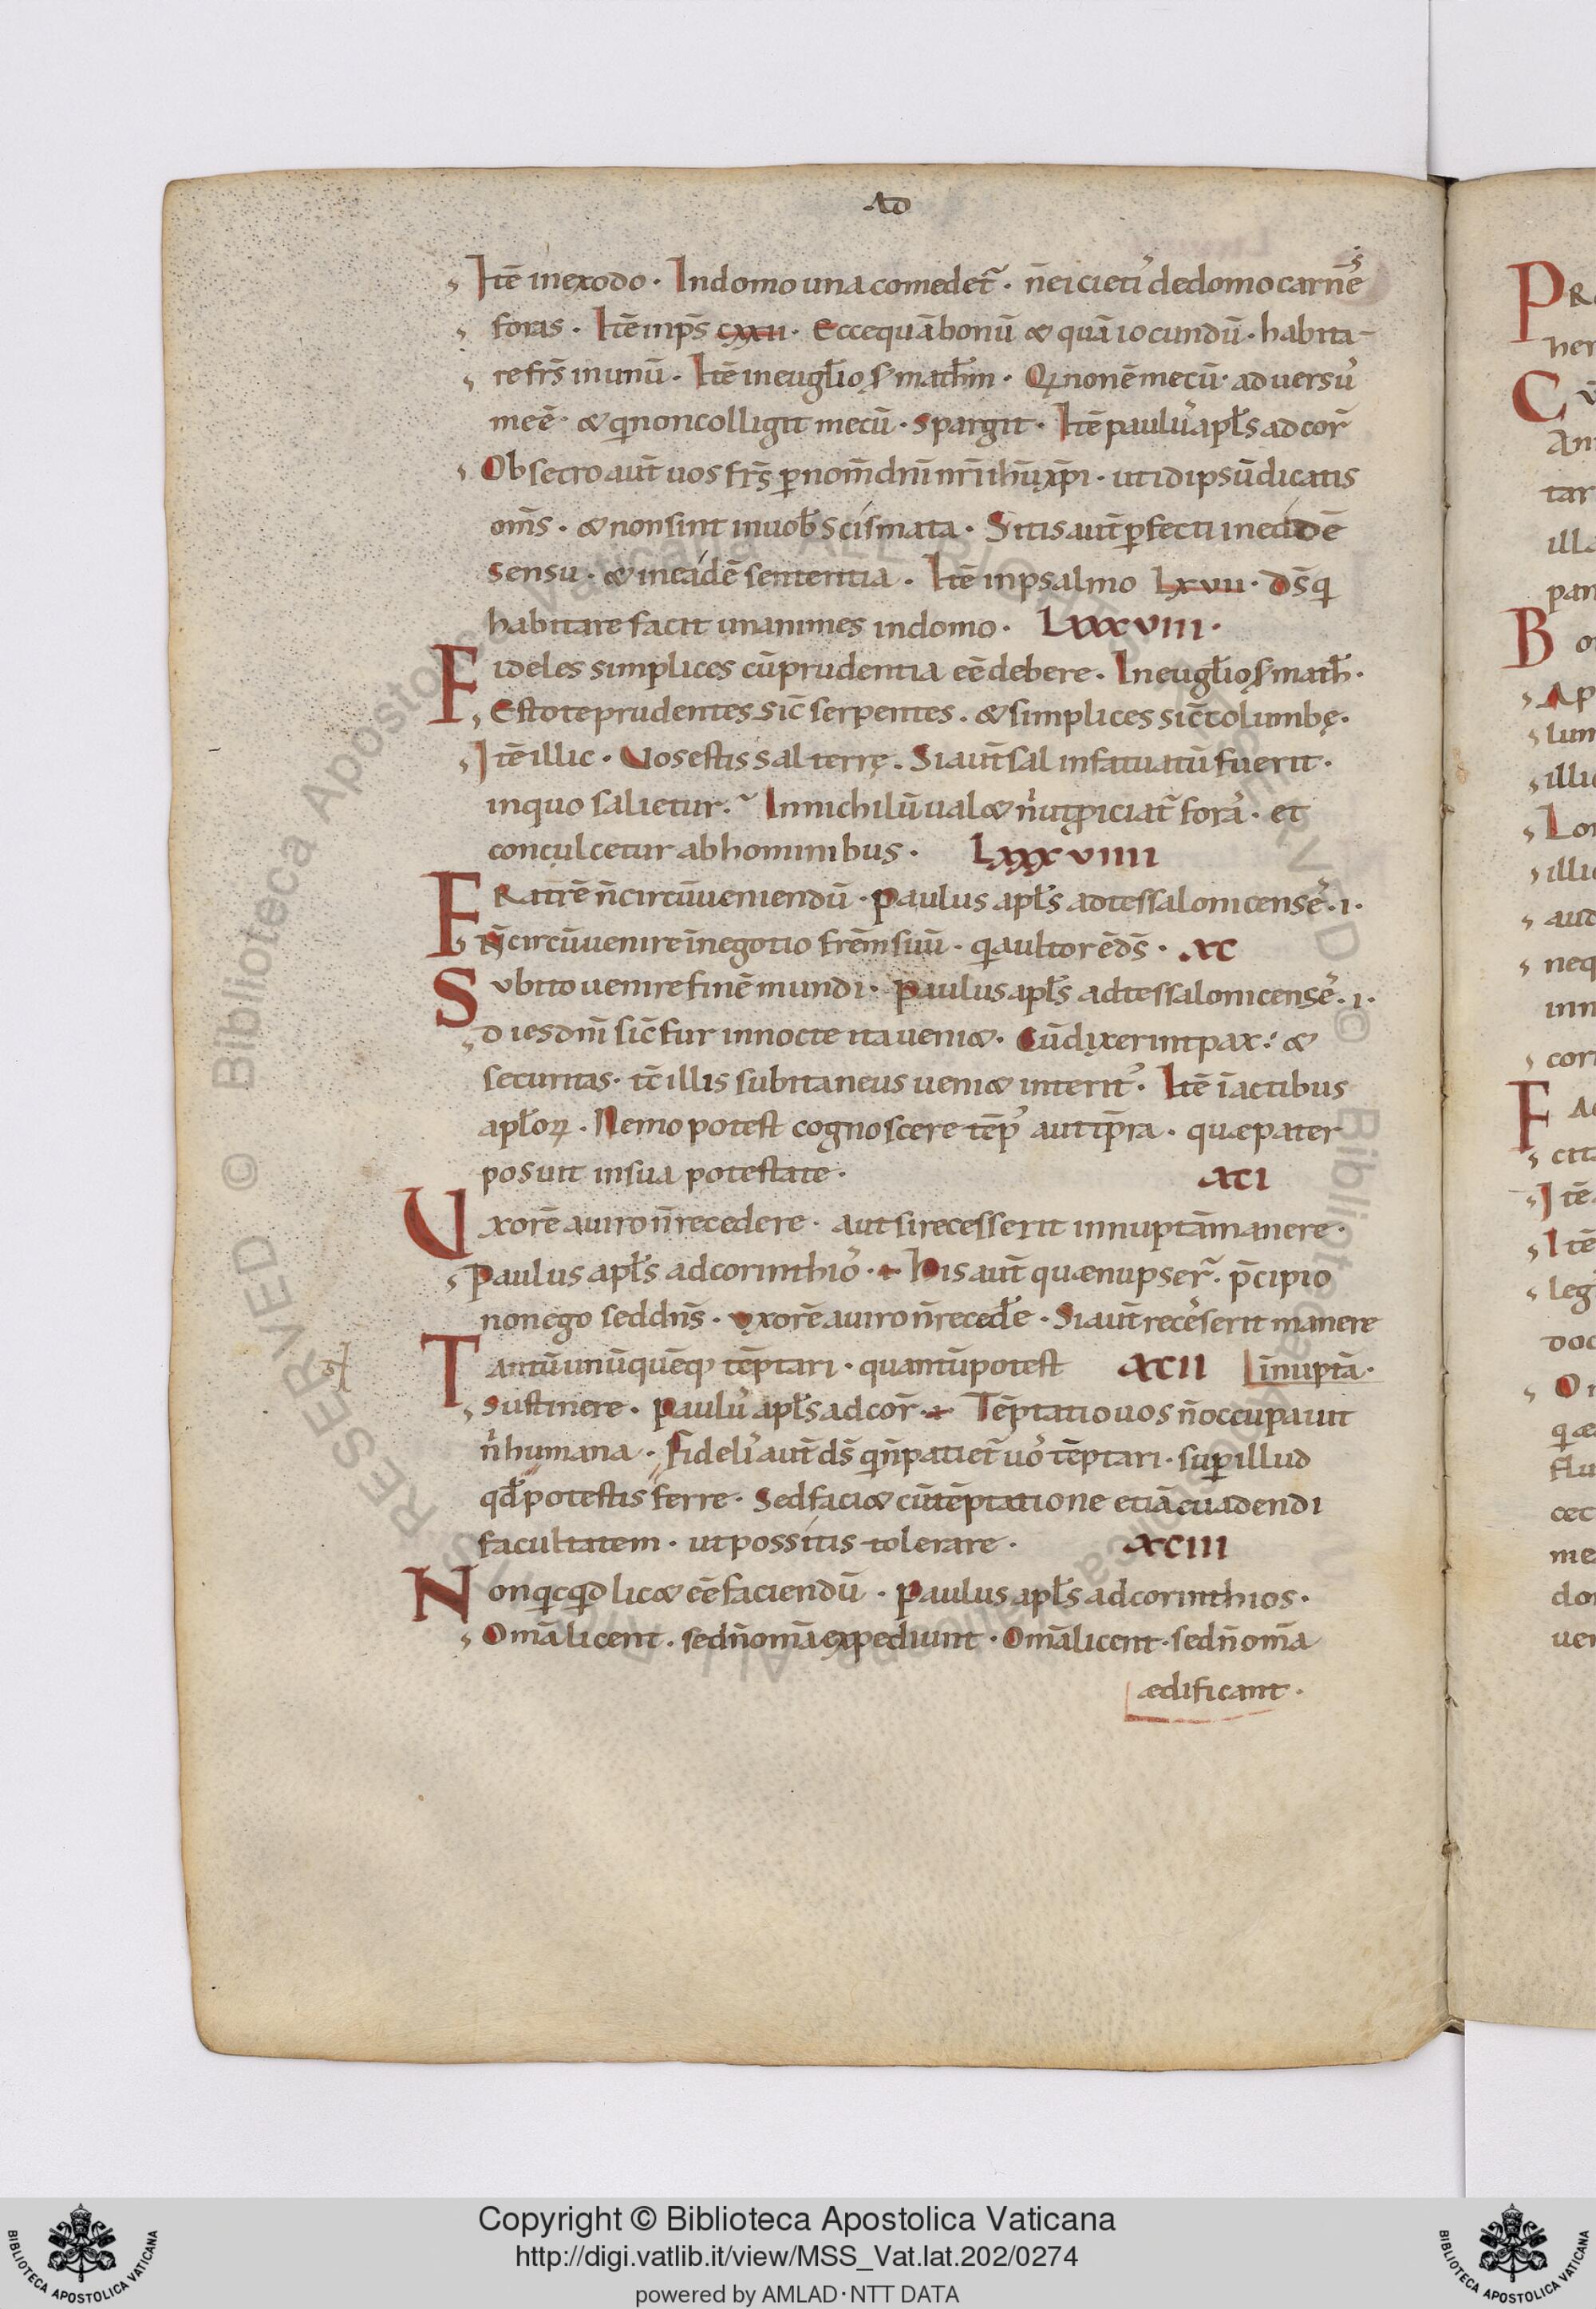 AD
Itē inexodo · Indomo una comedet᷑ · n̄eicietiˀ dedomo carnēˢ
foras · Itē inp̄s cxxii · Eccequābonū & quā iocundū · habita-
re fr̄s inunū · Itē ineugl̄io s̄ math̄m · Qi nonē mecū · aduersuˀ
meē · & qi noncolligit mecū · spargit · Itē pauluˀ apl̄s ad cor̄
Obsecro aut̄ uos fr̄s ꝑ nom̄ dn̄i nr̄i ih̄u xp̄i · ut idipsū dicatis
om̄s · & non sint inuob̄ scismata · Sitis aut̄ ꝑfecti ineodē
sensu · & ineadē sententia · Itē inpsalmo lxvii · d̄s qi
habitare facit unanimes indomo · LXXXVIII ·
Fideles simplices cū prudentia eē debere · In eugl̄io s̄ math̄ ·
Estote prudentes sic̄ serpentes · & simplices sic̄ columbę ·
Itē illic · Vos estis sal terrę · Si aut̄ sal infatuatū fuerit ·
inquo salietur · Innichilū ual& n̄ ut ꝓiciat᷑ foraˀ · et
conculcetur abhominibus · LXXXVIIII
FRatrē n̄ circūueniendū · Paulus apl̄s adtessalonicenseˀ · i ·
N̄ circūuenire īnegotio frēm suū · qi a ultor ē d̄s · XC
Svbito uenire finē mundi · Paulus apl̄s adtessalonicenseˀ · i ·
Dies dn̄i sic̄ fur innocte ita ueni& · Cū dixerint pax : &
securitas · tc̄ illis subitaneus ueni& interitˀ · Itē īactibus
apl̄oꝝ · Nemo potest cognoscere tēpˀ aut tp̄ra · quæ pater
posuit insua potestate · XCI
Uxorē auiro n̄ recedere · aut si recesserit innuptā manere ·
Paulus apl̄s adcorinthioˀ · His aut̄ quæ nupser᷑ · p̄cipio
non ego sed dn̄s · Vxorē auiro n̄ recedēe · Si aut̄ receˀserit manere
Tantū unūquēq; tēptari · quantū potest XCII īnuptā ·
Sustinere · Pauluˀ apl̄s ad cor̄ · Tēptatio uos n̄ occupauit
n̄ humana · Fideliˀ aut̄ d̄s qi n̄ patiet᷑ uoˀ tēptari · suꝑ illud
qd̄ potestis ferre · Sed faci& cū tēptatione etiā euadendi
facultatem · ut possitis tolerare · XCIII
Nonqicqid lic& eē faciendū · Paulus apl̄s adcorinthios ·
Om̄a licent · sed n̄ om̄a expediunt · Om̄a licent · sed n̄ om̄a
ædificant ·
PR
her
C v̄
An
tar
illa
par
B o
Ap
lum
illi
Lo
illi
aud
neq
inn
cor
F Ac
cita
Itē
Itē
leg
doc
O
flu
cec
me
do
uer
© Biblioteca Apostolica Vaticana ALL RIGHTS RESERVED
Copyright © Biblioteca Apostolica Vaticana
http://digi.vatlib.it/view/MSS_Vat.lat.202/0274
powered by AMLAD·NTT DATA
BIBLIOTECA APOSTOLICA VATICANA
BIBLIOTECA APOSTOLICA VATICANA